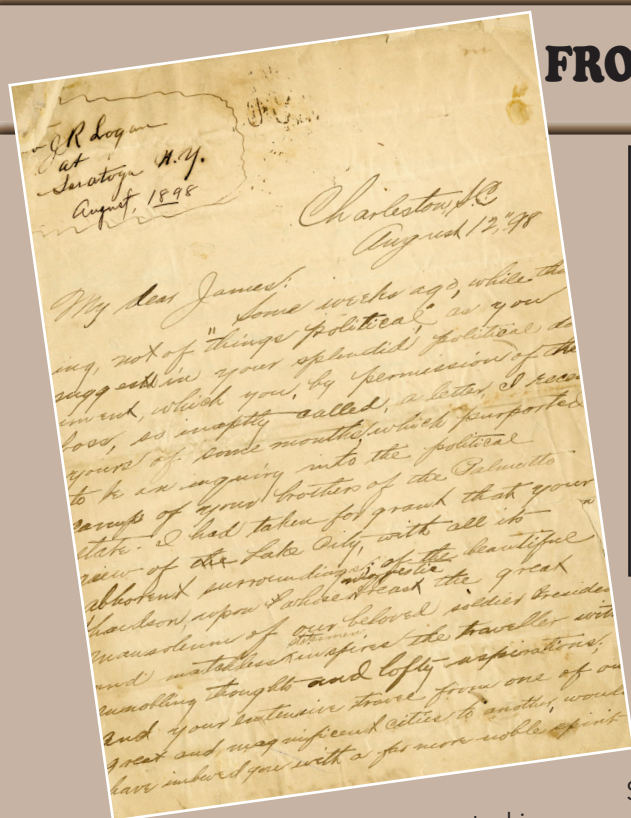 FRO
J R Logan
at
Saratoga N.Y.
August, 1898
Charleston, S.C
August 12, "98
My dear James:
Some weeks ago, while th
ing, not of "things political," as you
suggest in your splendid political do
ument, which you, by permission of the
boss, so inaptly called, a letter, I rece
yours of some months, which purported
to be an enquiry into the political
camps of your brothers of the Palmetto
state. I had taken for grant that your
view of the Lake City, with all its
abhorent surroundings; of the beautiful
hudson, upon whose majestic breast the great
mausoleum of our beloved soldier Presiden
and matchless statesman, inspires the traveller with
ennobling thoughts and lofty aspirations;
and your extensive travel from one of ou
great and magnificent cities to another, would
have imbued you with a far more noble spirit